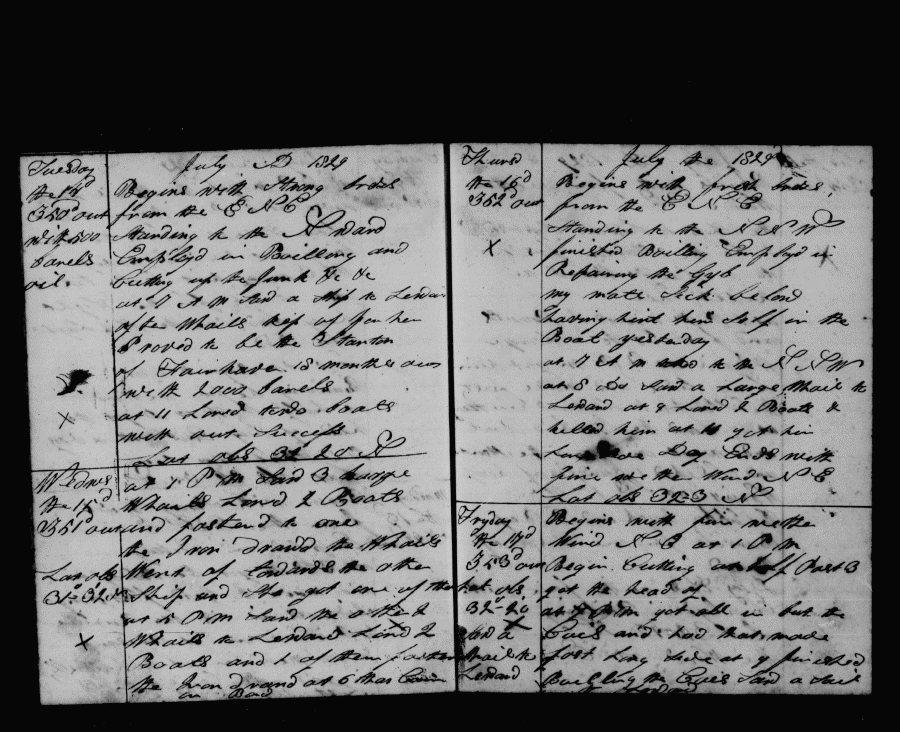 Tuesday
the 14d
350d out
with 500
barels
oil.
July AD 1829
Begins with Strong brees
from the E N E
Standing to the N ward
Employd in Boilling and
Cutting up the Junk &c &c
at 7 A M Saw a Ship to Leward
after Whails kep of for her
Proved to be the Stanton
of Fairhaven 18 months out
with 2000 barels
at 11 Lowrd two boats
with out Success
Lat obs 31 20 N
X
Wednes
the 15d
351d out
Lat obs
31=32 N
X
at 1 P M Saw 3 large
Whails Lowrd 2 Boats
and fastend to one
the Iron drawd the Whails
Went of towards the other
Ship and She got one of them
at 5 P M Saw the other 2
Whails to Leward Lowrd 2
Boats and 1 of them fastend
the Iron drawd at 6 thas
on Bord
Thursd
the 16d
352d out
X
July the 1829
Begins with fresh brees
from the E N E
Standing to the N N W
finished Boilling Employd in
Repairing the Gyb
my mate Sick be low
having hirt him Self in the
Boat yesterday
at 7 A M to the N N W
at 8 Do Saw a Large Whail to
Leward at 9 Lowrd 2 Boats &
killed him at 11 got him
Day Ends with
fine wether Wind N E
Lat obs 32=3 N
Fryday
the 17d
353d out
Lat obs
32-20
X
Saw a
Whail to
Leward
Begins with fine wether
Wind N E at 1 P M
Begin Cutting at half Past 3
got the head of
at 7 P M got all in but the
and had that made
fast Long Side at 9 finished
the Saw a Sail
Leward